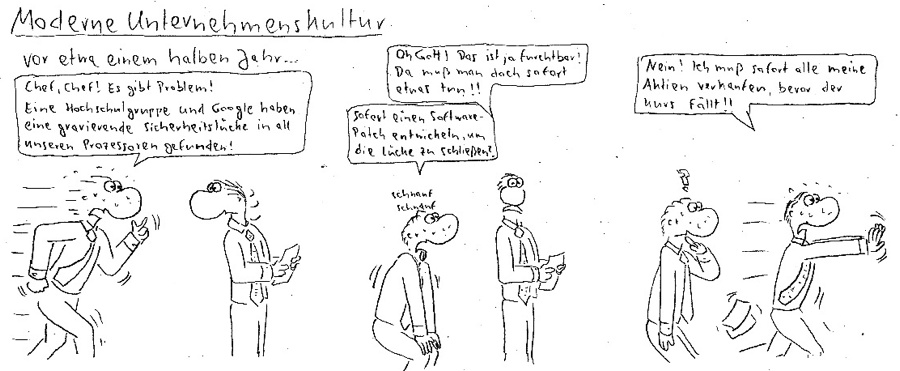 Moderne Unternehmenskultur
vor etwa einem halben Jahr...
Chef, Chef! Es gibt Problem!
Eine Hochschulgruppe und Google haben
eine gravierende Sicherheitslücke in all
unseren Prozessoren gefunden!
Oh Gott! Das ist ja furchtbar!
Da muß man doch sofort
etwas tun!!
Sofort einen Software-
Patch entwickeln, um
die Lücke zu schließen?
schnauf
schnauf
Nein! Ich muß sofort alle meine
Aktien verkaufen, bevor der
Kurs fällt!!